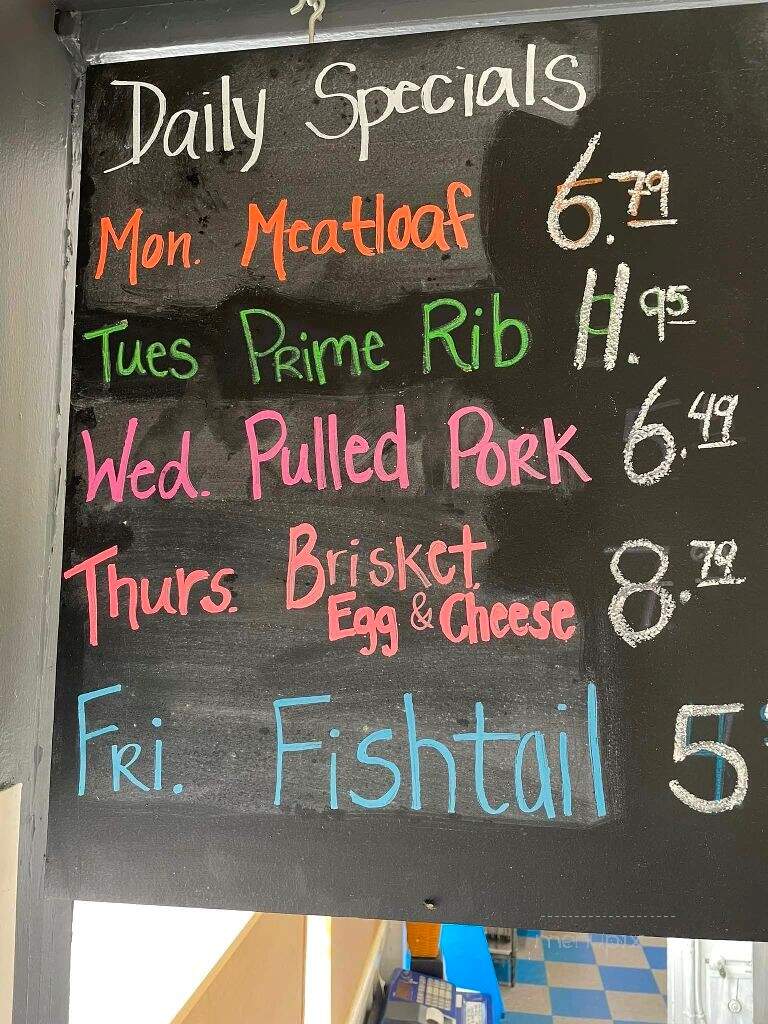 Daily Specials
Mon. Meatloaf 6.79
Tues Prime Rib 11.95
Wed. Pulled Pork 6.49
Thurs. Brisket 8.79
Egg & Cheese
Fri. Fishtail 5
menupix